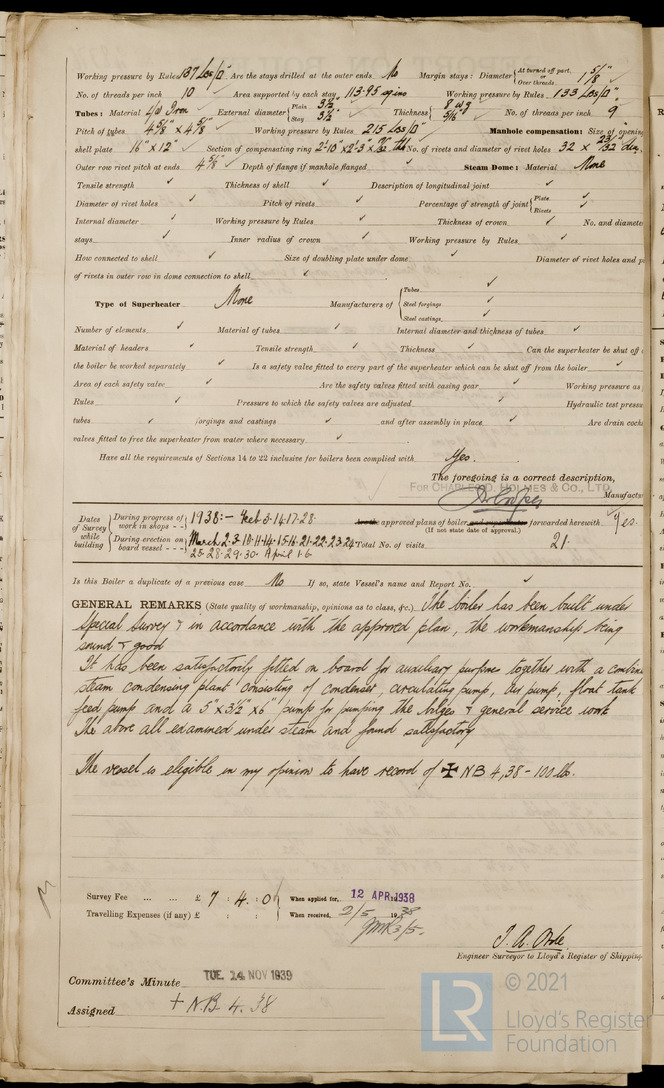 Working pressure by Rules 137 Lbs/□" Are the stays drilled at the outer ends No Margin stays: Diameter { At turned off part, or Over threads 1 5/8" ✓
No. of threads per inch 10 ✓ Area supported by each stay 113.95 sq ins Working pressure by Rules 133 Lbs/□"
Tubes: Material L/W Iron ✓ External diameter { Plain 3½" Stay 3½" ✓ Thickness { 8 wg 5/16" ✓ No. of threads per inch 9
Pitch of tubes 4 5/8" x 4 5/8 ✓ Working pressure by Rules 215 Lbs/□" Manhole compensation: Size of opening
shell plate 16" x 12" ✓ Section of compensating ring 2'-10" x 2'-3" x No. of rivets and diameter of rivet holes 32 x 23/32 dia.
Outer row rivet pitch at ends 4 5/8" ✓ Depth of flange if manhole flanged ✓ Steam Dome: Material None
Tensile strength ✓ Thickness of shell ✓ Description of longitudinal joint ✓
Diameter of rivet holes ✓ Pitch of rivets ✓ Percentage of strength of joint { Plate ✓ Rivets ✓
Internal diameter ✓ Working pressure by Rules ✓ Thickness of crown ✓ No. and diameter
stays ✓ Inner radius of crown ✓ Working pressure by Rules ✓
How connected to shell ✓ Size of doubling plate under dome ✓ Diameter of rivet holes and p
of rivets in outer row in dome connection to shell ✓
Type of Superheater None Manufacturers of { Tubes ✓ Steel forgings ✓ Steel castings ✓
Number of elements ✓ Material of tubes ✓ Internal diameter and thickness of tubes ✓
Material of headers ✓ Tensile strength ✓ Thickness ✓ Can the superheater be shut off
the boiler be worked separately ✓ Is a safety valve fitted to every part of the superheater which can be shut off from the boiler ✓
Area of each safety valve ✓ Are the safety valves fitted with easing gear ✓ Working pressure as
Rules ✓ Pressure to which the safety valves are adjusted ✓ Hydraulic test press
tubes ✓ forgings and castings ✓ and after assembly in place ✓ Are drain cock
valves fitted to free the superheater from water where necessary ✓
Have all the requirements of Sections 14 to 22 inclusive for boilers been complied with Yes.
The foregoing is a correct description,
For CHARLES D. HOLMES & Co., LTD. Manufactu
Dates of Survey while building { During progress of work in shops - - } 1938:- Feb 3.14.17.28. Are the approved plans of boiler and superheater forwarded herewith Yes.
(If not state date of approval.)
{ During erection on board vessel - - - } March 2.3.10.11.14.15.16.21.22.23.24 Total No. of visits 21.
25.28.29.30. April 1.6
Is this Boiler a duplicate of a previous case No If so, state Vessel's name and Report No. ✓
GENERAL REMARKS (State quality of workmanship, opinions as to class, &c.) The boiler has been built under
special survey & in accordance with the approved plan, the workmanship being
sound & good
It has been satisfactorily fitted on board for auxiliary purpose together with a combin
steam condensing plant consisting of condenser, circulating pump, air pump, float tank
feed pump and a 5" x 3½" x 6" pump for pumping the bilges & general service work
The above all examined under steam and found satisfactory
The vessel is eligible in my opinion to have record of ✠ NB 4,38 - 100 lb.
Survey Fee ... ... £ 7 : 4 : 0 When applied for, 12 APR 1938
Travelling Expenses (if any) £ : : When received, 2/5 1938
3/5.
Engineer Surveyor to Lloyd's Register of Shipping
Committee's Minute TUE. 14 NOV 1939
Assigned + N.B. 4.38
LR © 2021
Lloyd's Register
Foundation